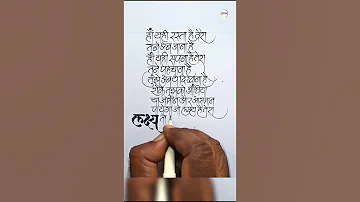 हाँ यही रस्ता है तेरा
तूने अब जाना है
हाँ यही सपना है तेरा
तूने पहचाना है
तुझे अब ये दिखाना है
रोके तुझको आँधियाँ
या जमीन और आसमान
पायेगा जो लक्ष्य है तेरा
लक्ष्य तो